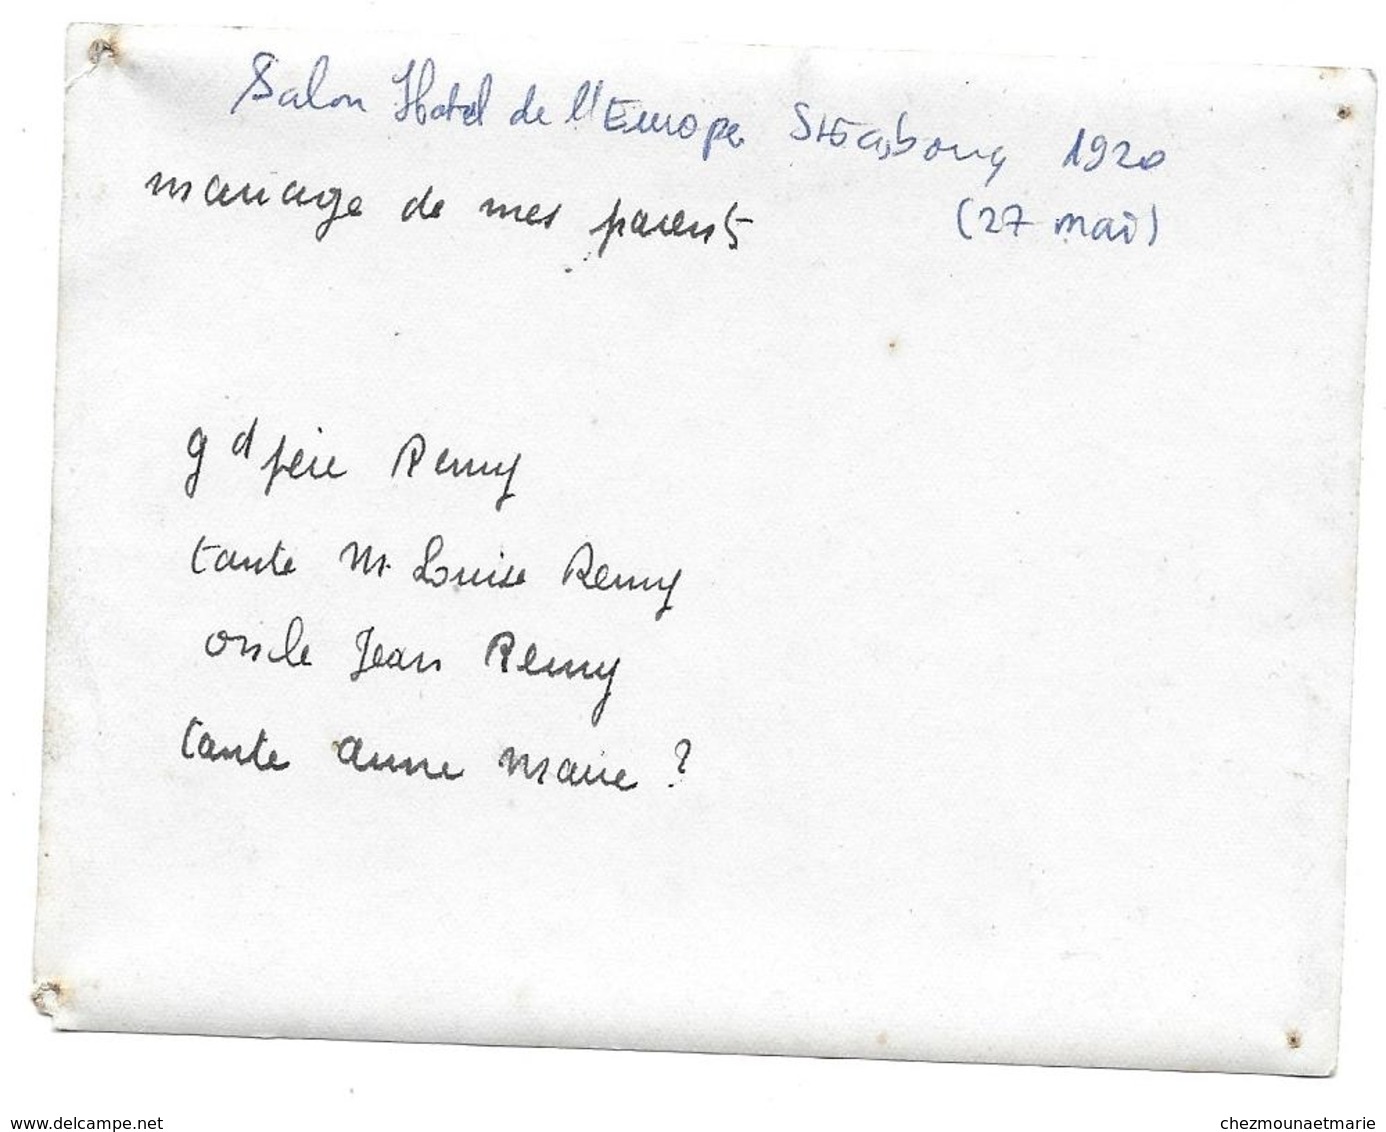 Salon Hotel de l'Europe Strasbourg 1920
mariage de mes parents (27 mai)
gd père Remy
tante M. Louise Remy
oncle Jean Remy
tante anne marie ?
www.delcampe.net
chezmounaetmarie